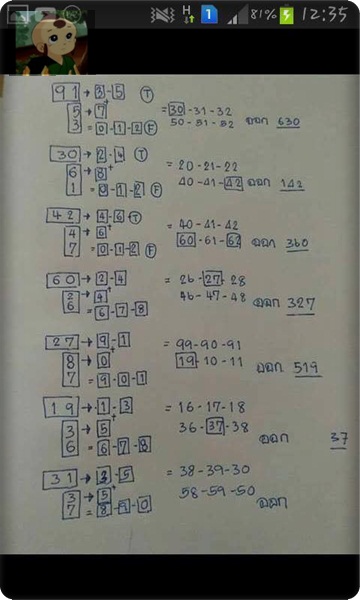 H 1 81% 12:35
91 → 3-5 T
5 → 7+ = 30-31-32
3 = 0-1-2 F 50-51-52 ออก 630
30 → 2-4 T
6 → 8+ = 20-21-22
1 = 0-1-2 F 40-41-42 ออก 142
42 → 4-6 T
4 → 6+ = 40-41-42
7 = 0-1-2 F 60-61-62 ออก 360
60 → 2-4 = 26-27-28
2 → 4+ 46-47-48 ออก 327
6 = 6-7-8
27 → 9-1 = 99-90-91
8 → 0+ 19-10-11 ออก 519
7 = 9-0-1
19 → 1-3 = 16-17-18
3 → 5+ 36-37-38 ออก 37
6 = 6-7-8
31 → 3-5 = 38-39-30
3 → 5+ 58-59-50 ออก
7 = 8-9-0